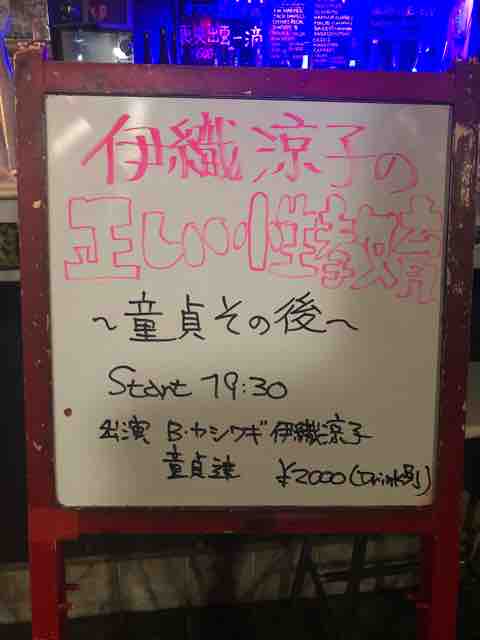 伊織涼子の
正しい性教育
～童貞その後～
Start 19:30
出演 B・カシワギ 伊織涼子
童貞達 ¥2000(Drink別)